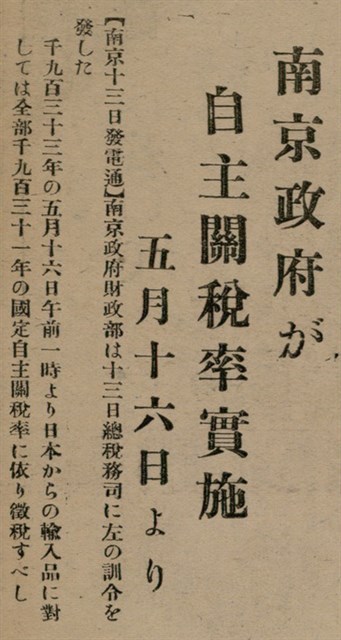 南京政府が
自主關稅率實施
五月十六日より
【南京十三日發電通】南京政府財政部は十三日總稅務司に左の訓令を
發した
千九百三十三年の五月十六日午前一時より日本からの輸入品に對
しては全部千九百三十一年の國定自主關稅率に依り徵稅すべし